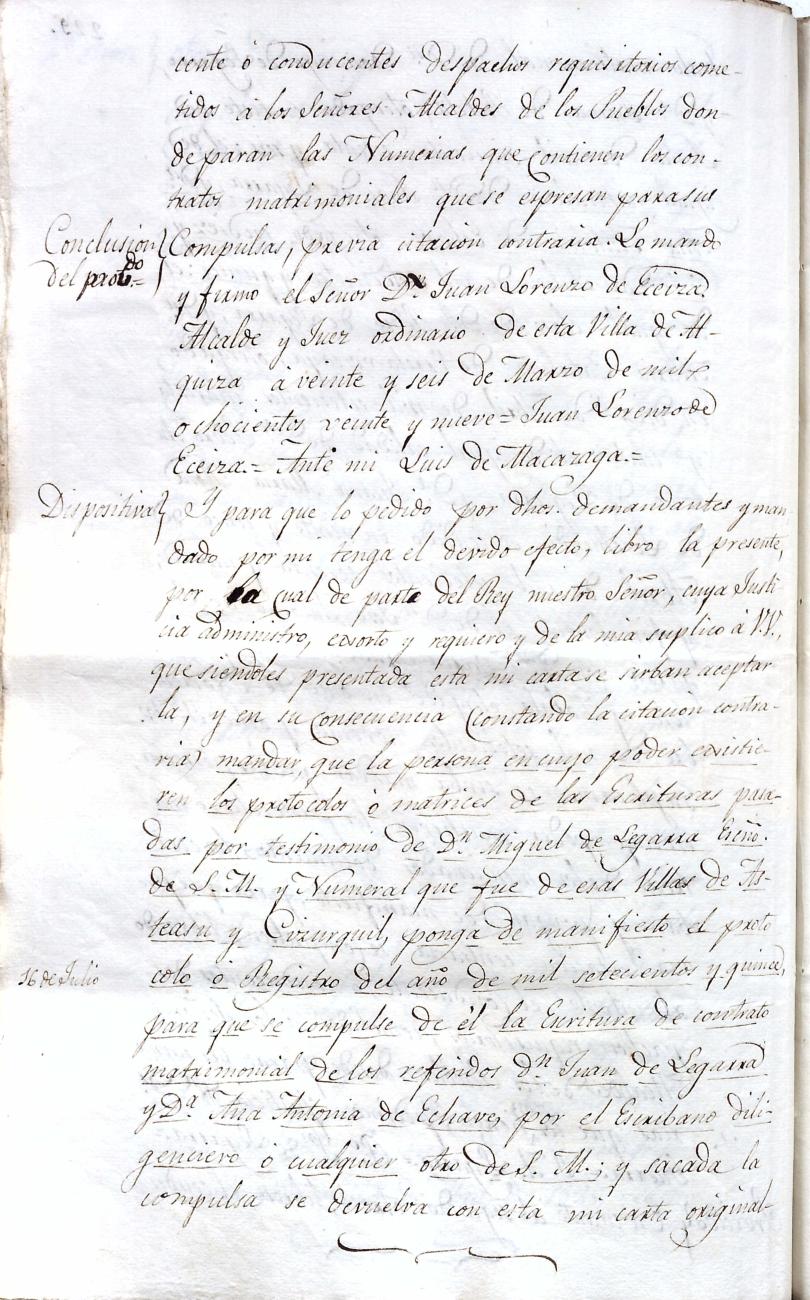 cente ó conducentes despachos requisitorios come-
tidos á los Señores Alcaldes de los Pueblos don
de páran las Numerias que contienen los con-
tratos matrimoniales que se espresan para sus
Conclusion
del prot.do=
Compulsas, previa citacion contraria. Lo mando
y firmo el Señor D.n Juan Lorenzo de Eceiza
Alcalde y Juez ordinario de esta Villa de Al-
quiza á veinte y seis de Marzo de mil
ochocientos veinte y nueve= Juan Lorenzo de
Eceiza.= Ante mi Luis de Macazaga.=
Dispositiva
Y para que lo pedido por dhos. demandantes y man
dado por mi tenga el devido efecto, libro la presente,
por la cual de parte del Rey nuestro Señor, cuya Justi
cia administro, exsorto y requiero y de la mia suplico á V.V.,
que siendoles presentada esta mi carta se sirban aceptar
la, y en su consecuencia (constando la citacion contra-
ria) mandar, que la persona en cuyo poder existie-
ren los protocolos ó matrices de las Escrituras pasa-
das por testimonio de D.n Miguel de Legarra Escño.
de S. M. y Numeral que fue de esas Villas de As-
teasu y Cizurquil, ponga de manifiesto el proto
16 de Julio
colo ó Registro del año de mil setecientos y quince,
para que se compulse de él la Escritura de contrato
matrimonial de los referidos d.n Juan de Legarra
y D.a Ana Antonia de Echave, por el Escribano dili-
genciero ó cualquier otro de S. M.; y sacada la
compulsa se devuelva con esta mi carta original